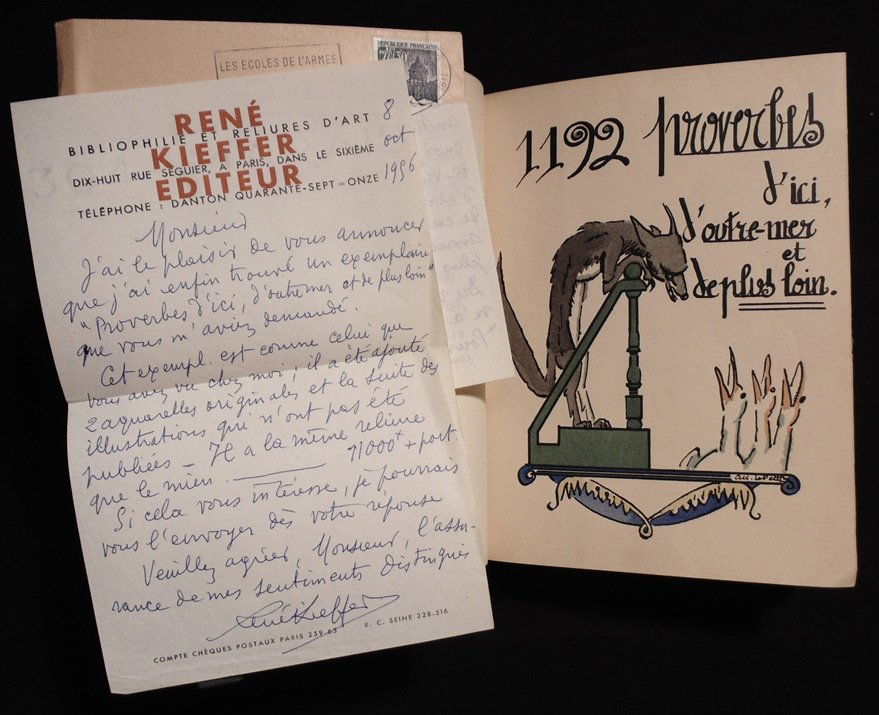 LES ECOLES DE L'ARMÉE
REPUBLIQUE FRANÇAISE
RENÉ
BIBLIOPHILIE ET RELIURES D'ART
KIEFFER
DIX-HUIT RUE SÉGUIER, A PARIS, DANS LE SIXIÈME
EDITEUR
TÉLÉPHONE : DANTON QUARANTE-SEPT=ONZE
8
oct
1956
Monsieur
J'ai le plaisir de vous annoncer
que j'ai enfin trouvé un exemplaire
"Proverbes d'ici, d'outremer et de plus loin"
que vous m'aviez demandé.
Cet exempl. est comme celui que
vous avez vu chez moi ; il a été ajouté
2 aquarelles originales et la suite des
illustrations qui n'ont pas été
publiées _ Il a la même reliure
que le mien. 11000 + port
Si cela vous intéresse, je pourrais
vous l'envoyer dès votre réponse
Veuillez agréer, Monsieur, l'assu-
rance de mes sentiments distingués
René Kieffer
COMPTE CHÈQUES POSTAUX PARIS 259.63 R. C. SEINE 228.516
1192 proverbes
d'ici,
d'outre-mer
et
de plus loin.